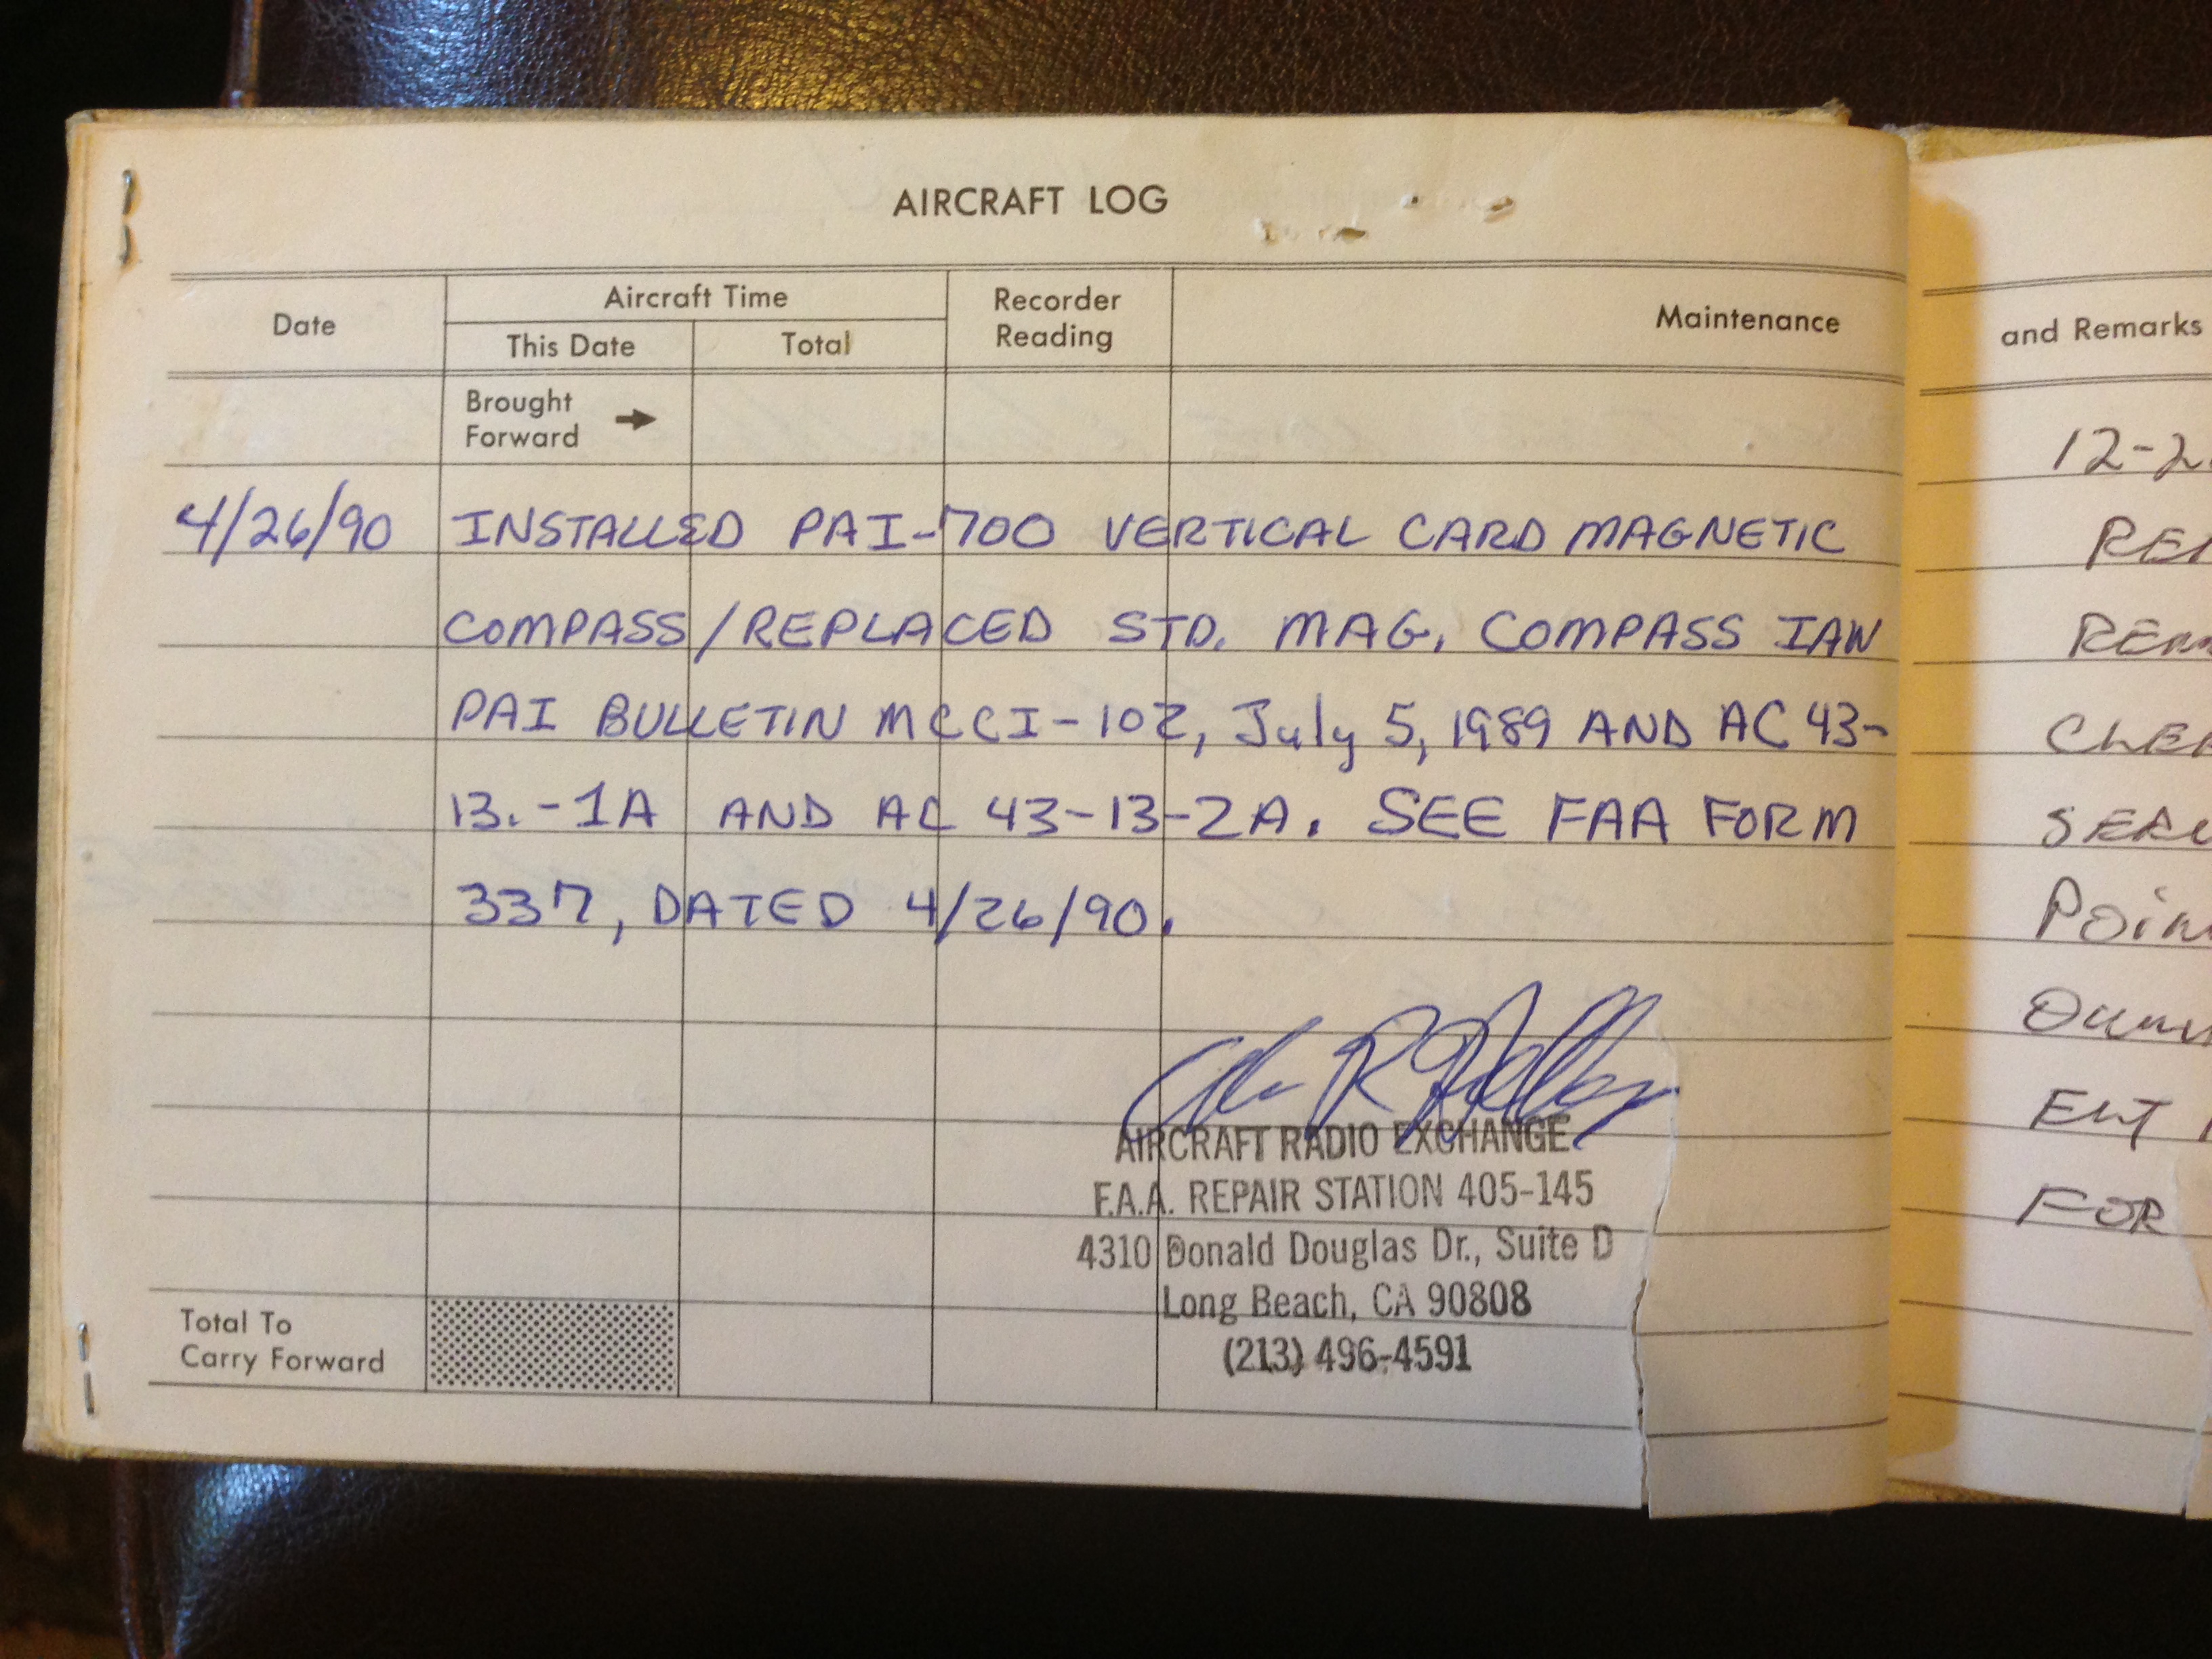 AIRCRAFT LOG
Date
Aircraft Time
This Date Total
Recorder
Reading
Maintenance
and Remarks
Brought
Forward
4/26/90 INSTALLED PAI-700 VERTICAL CARD MAGNETIC
COMPASS/REPLACED STD. MAG. COMPASS IAW
PAI BULLETIN MCCI-102, July 5, 1989 AND AC 43-
13.-1A AND AC 43-13-2A. SEE FAA FORM
337, DATED 4/26/90.
AIRCRAFT RADIO EXCHANGE
F.A.A. REPAIR STATION 405-145
4310 Donald Douglas Dr., Suite D
Long Beach, CA 90808
(213) 496-4591
Total To
Carry Forward
12-2
FOR